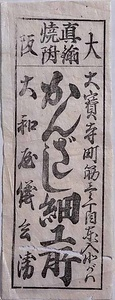 大阪
真鍮
焼附
大寶寺町筋三丁目東入
かんざし細工所
大和屋儀兵衛